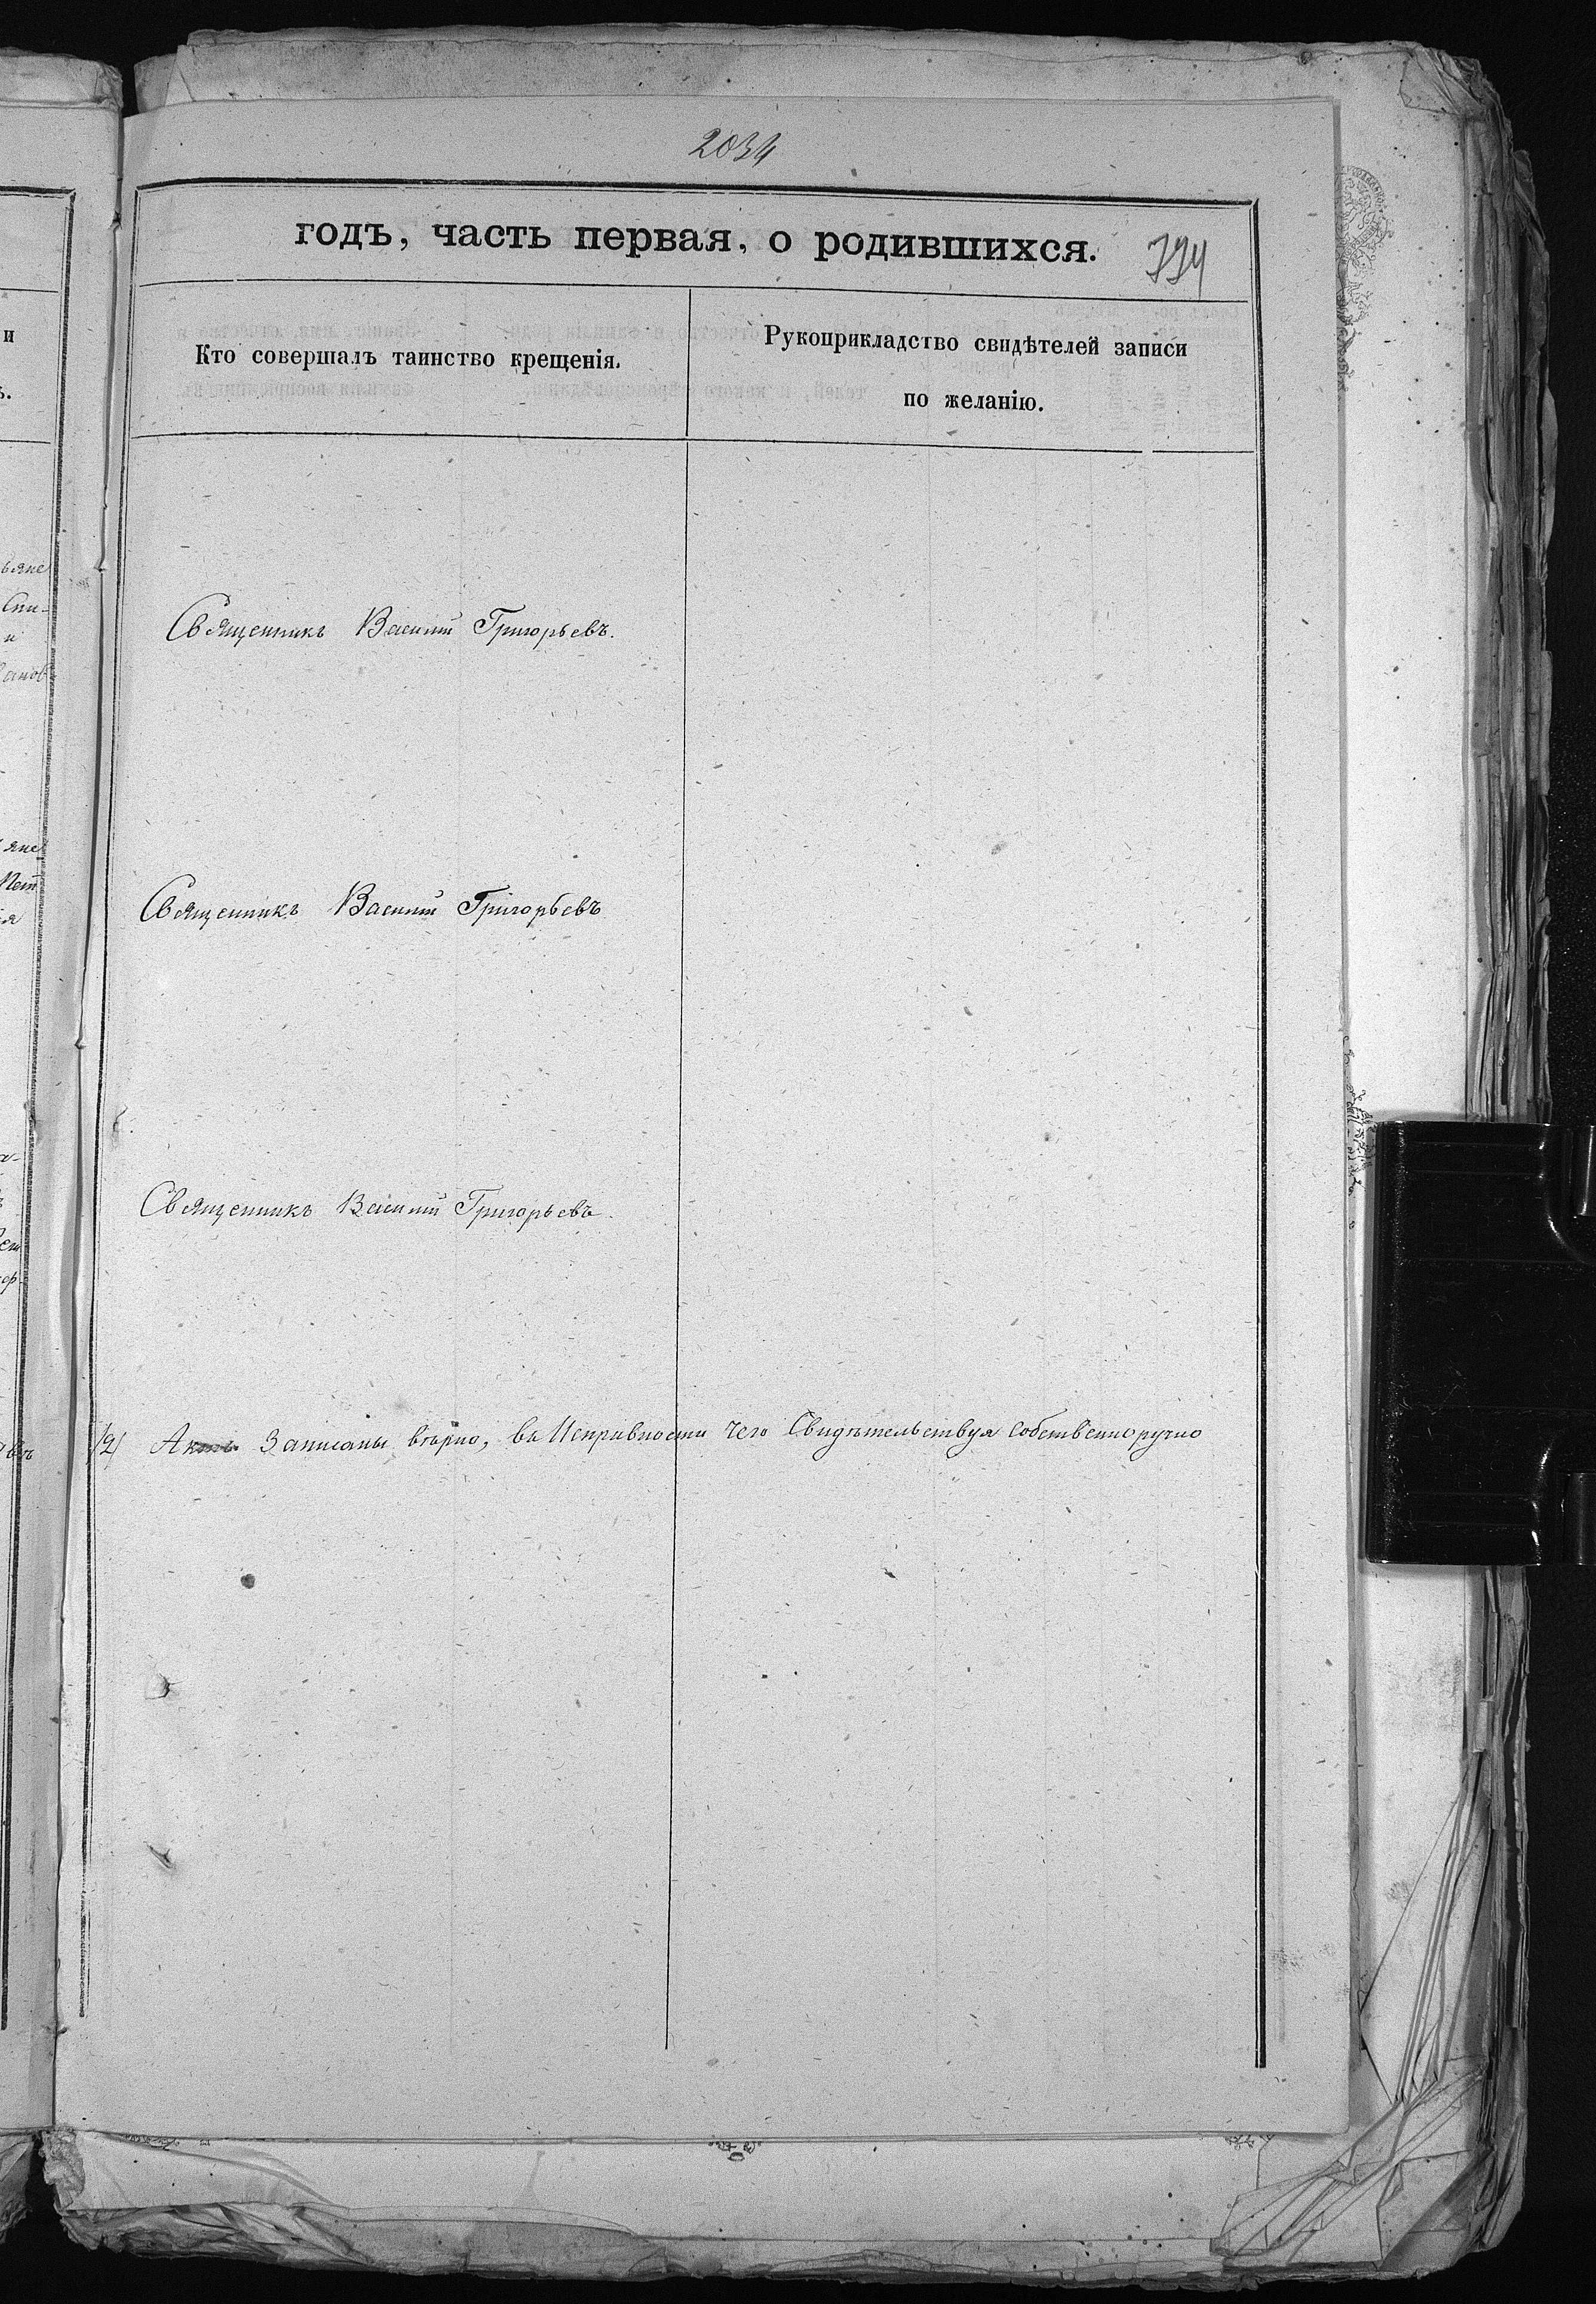 2034
годъ, часть первая, о родившихся.
794
Кто совершалъ таинство крещенія.
Рукоприкладство свидѣтелей записи
по желанію.
Священникъ Василій Григорьевъ.
Священникъ Василій Григорьевъ
Священникъ Василій Григорьевъ.
Записаны вѣрно, въ Исправности чего Свидѣтельствуя Собственноручно